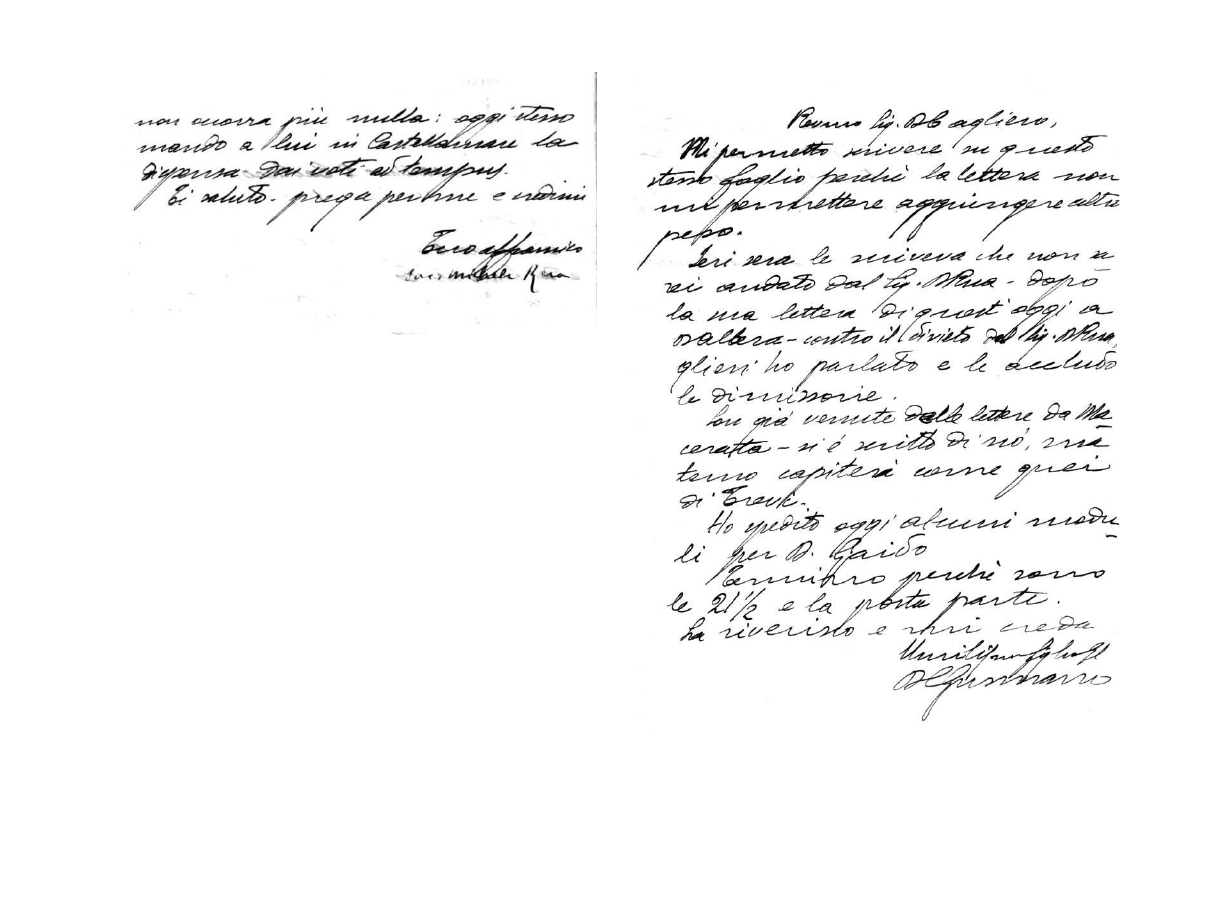 non occorra più nulla: oggi stesso
mando a lui in Castellamare la
dispensa dai voti ad tempus.
Ti saluto. prega per me e credimi
Tuo aff amico
Sac Michele Rua
Revmo Sig. D Cagliero,
Mi permetto scrivere su questo
stesso foglio perchè la lettera non
mi permettere aggiungere altro
peso.
Ieri sera le scriveva che non sa
rei andato dal Sig. D Rua - dopo
la sua lettera di quest'oggi a
D Albera - contro il divieto del Sig. D Rua,
glien' ho parlato e le accludo
le dimissorie.
Son già venute delle lettere da Ma
cerata - si è scritto di nò, ma
temo capiterà come quei
di Trevi.
Ho spedito oggi alcuni modu
li per D. Gaido
Termino perchè sono
le 21 1/2 e la posta parte.
La riverisco e mi creda
D Gusmano